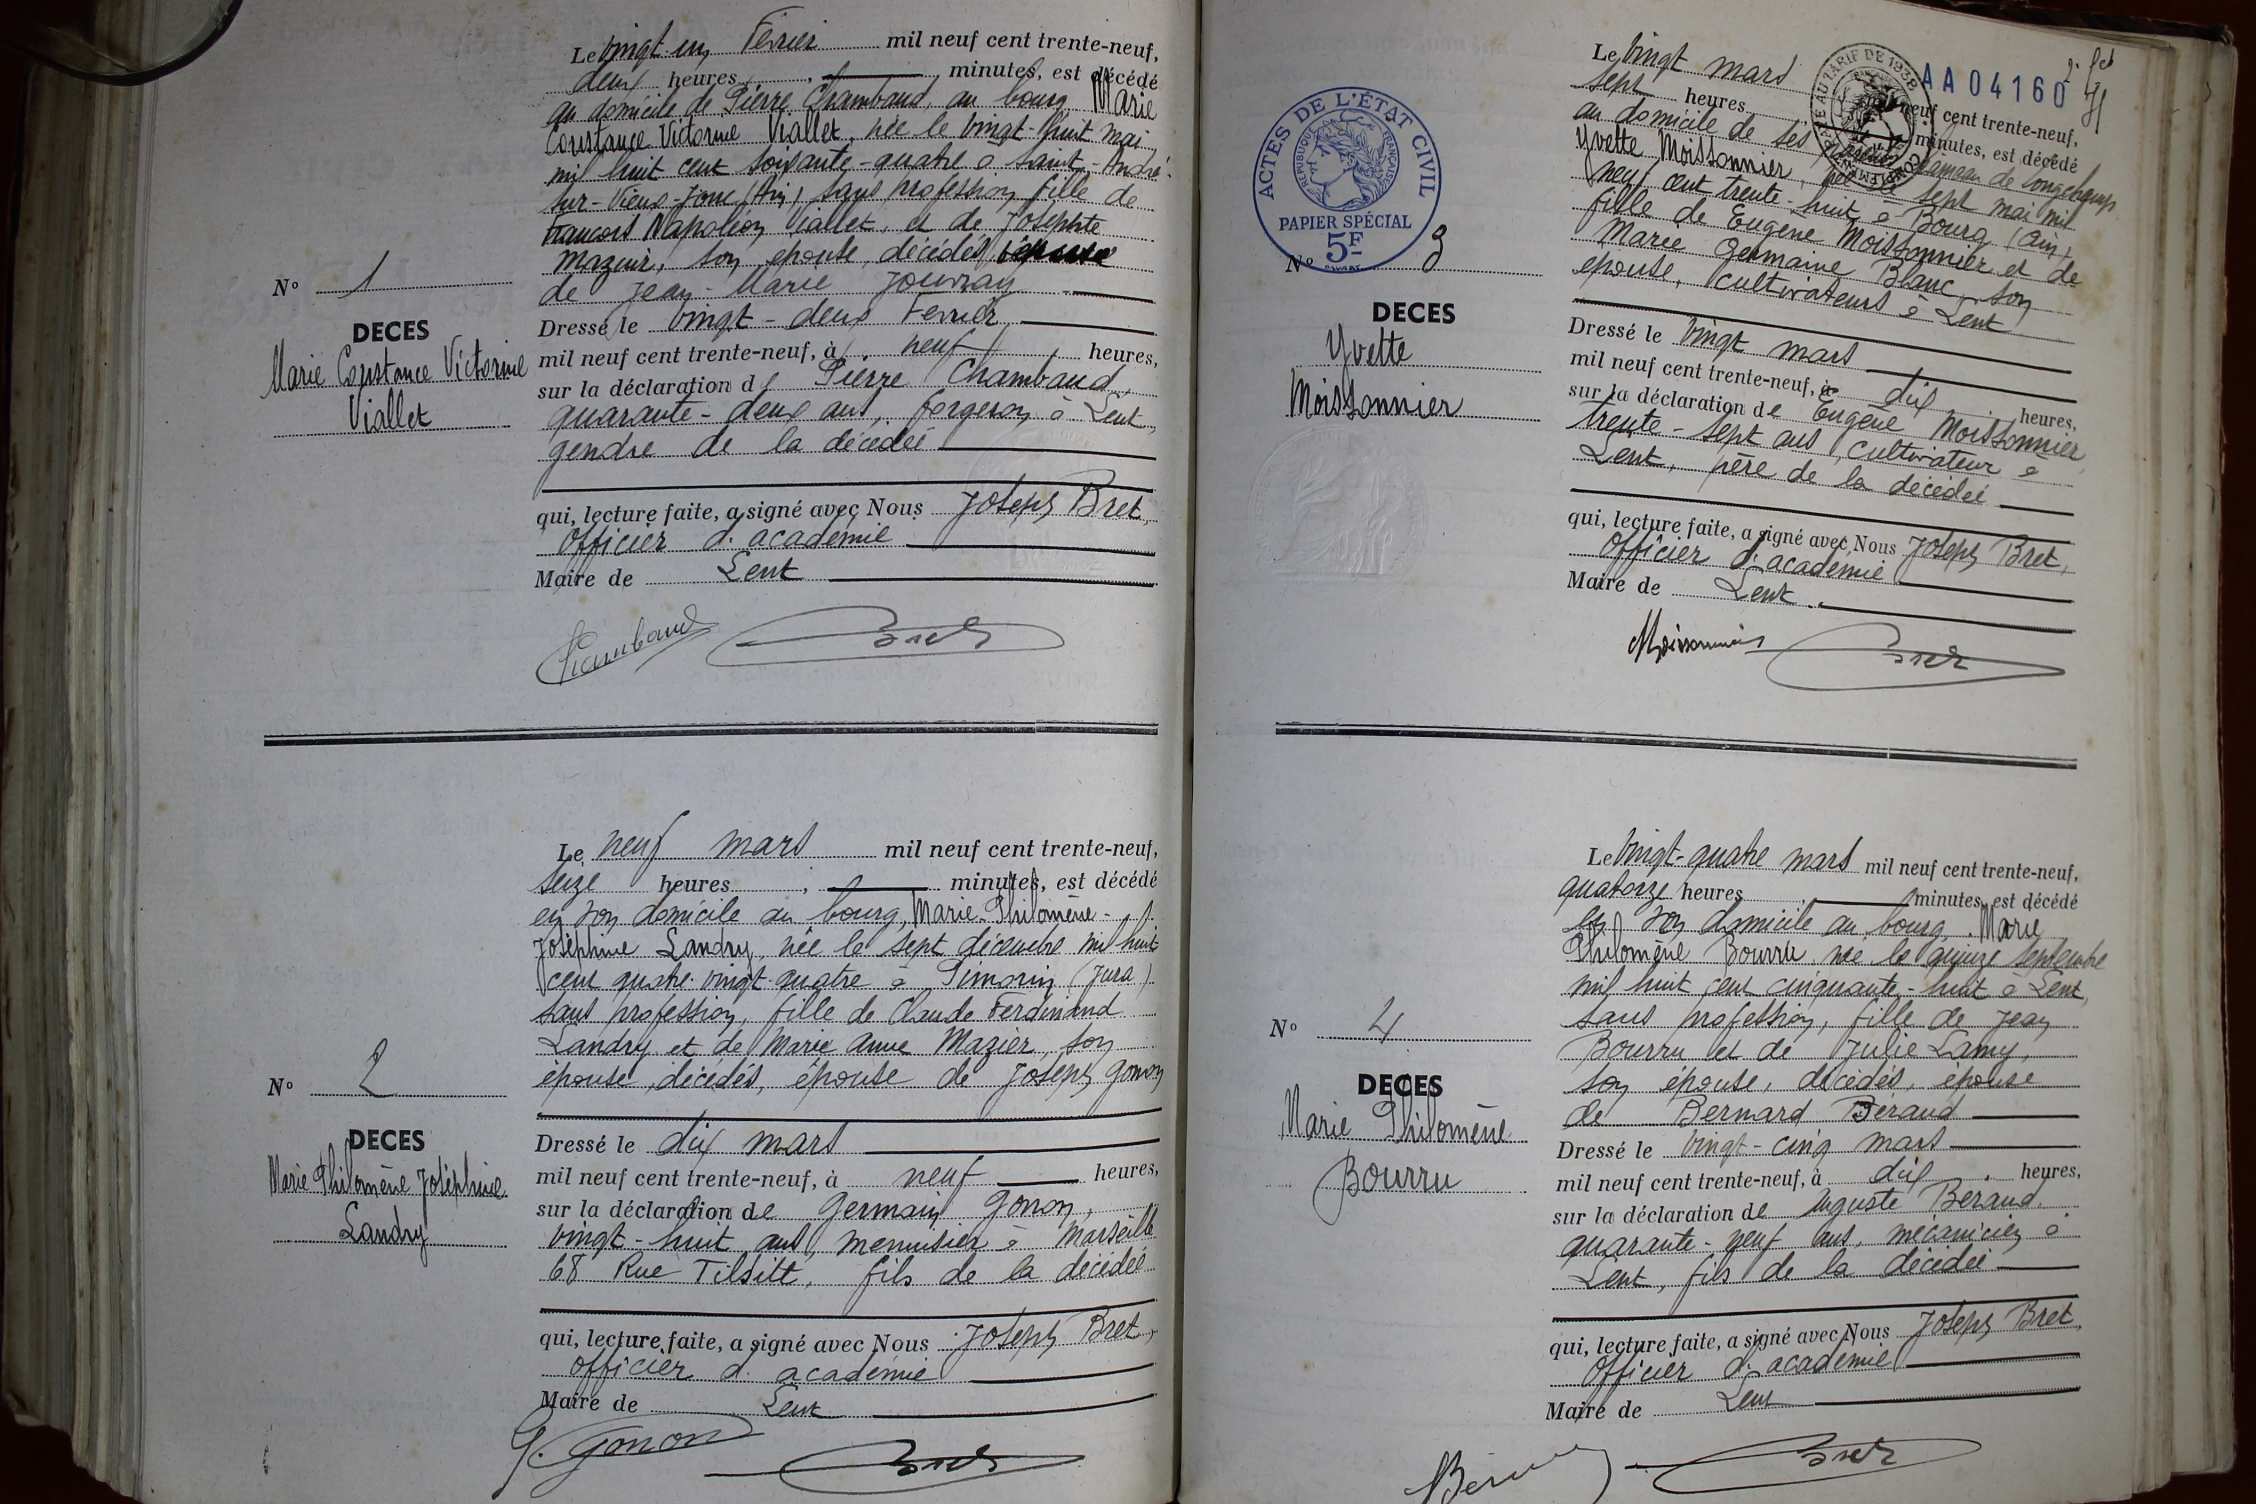 Le vingt un Février mil neuf cent trente-neuf,
deux heures, minutes, est décédé
au domicile de Pierre Chambaud, au bourg Marie
Constance Victorine Viallet, née le vingt-huit mai
mil huit cent soixante-quatre à Saint-André-
sur-Vieux-Jonc (Ain) sans profession, fille de
François Napoléon Viallet, et de Josephte
Mazuir, son épouse, décédés, épouse
de Jean-Marie Jouvray
Nº 1
DECES
Marie Constance Victorine
Viallet
Dressé le vingt-deux Février
mil neuf cent trente-neuf, à neuf heures,
sur la déclaration de Pierre Chambaud,
quarante-deux ans, forgeron à Lent,
gendre de la décédée
qui, lecture faite, a signé avec Nous Joseph Bret,
Officier d. académie
Maire de Lent
Chambaud Bret
Le neuf mars mil neuf cent trente-neuf,
seize heures, minutes, est décédé
en son domicile au bourg, Marie-Philomène-
Joséphine Landry, née le sept décembre mil huit
cent quatre-vingt-quatre à Simorin (Jura)
sans profession, fille de Claude Ferdinand
Landry et de Marie Anne Mazier, son
épouse, décédés, épouse de Joseph Gonon
Nº 2
DECES
Marie Philomène Joséphine
Landry
Dressé le dix mars
mil neuf cent trente-neuf, à neuf heures,
sur la déclaration de Germain Gonon,
vingt-huit ans, menuisier à Marseille
68 Rue Tilsitt, fils de la décédée
qui, lecture faite, a signé avec Nous Joseph Bret,
Officier d. académie
Maire de Lent
G. Gonon Bret
2e fet
AA04160
PAPIER AU TARIF DE 1938
ACTES DE L'ÉTAT CIVIL
RÉPUBLIQUE FRANÇAISE
PAPIER SPÉCIAL
5F
Le vingt mars mil neuf cent trente-neuf,
sept heures, minutes, est décédé
au domicile de ses parents hameau de Longchamp
Yvette Moissonnier, née le sept mai mil
neuf cent trente-huit à Bourg (Ain),
fille de Eugène Moissonnier et de
Marie Germaine Blanc, son
épouse, cultivateurs à Lent
Nº 3
DECES
Yvette
Moissonnier
Dressé le vingt mars
mil neuf cent trente-neuf, à dix heures,
sur la déclaration de Eugène Moissonnier,
trente-sept ans, cultivateur à
Lent, père de la décédée
qui, lecture faite, a signé avec Nous Joseph Bret,
Officier d. académie
Maire de Lent
Moissonnier Bret
Le vingt-quatre mars mil neuf cent trente-neuf,
quatorze heures minutes, est décédé
en son domicile au bourg, Marie
Philomène Bourru née le quinze septembre
mil huit cent cinquante-huit à Lent,
sans profession, fille de Jean
Bourru et de Julie Lamy,
son épouse, décédés, épouse
de Bernard Béraud
Nº 4
DECES
Marie Philomène
Bourru
Dressé le vingt-cinq mars
mil neuf cent trente-neuf, à dix heures,
sur la déclaration de Auguste Beraud,
quarante-neuf ans, mécanicien à
Lent, fils de la décédée
qui, lecture faite, a signé avec Nous Joseph Bret,
Officier d. académie
Maire de Lent
Bret